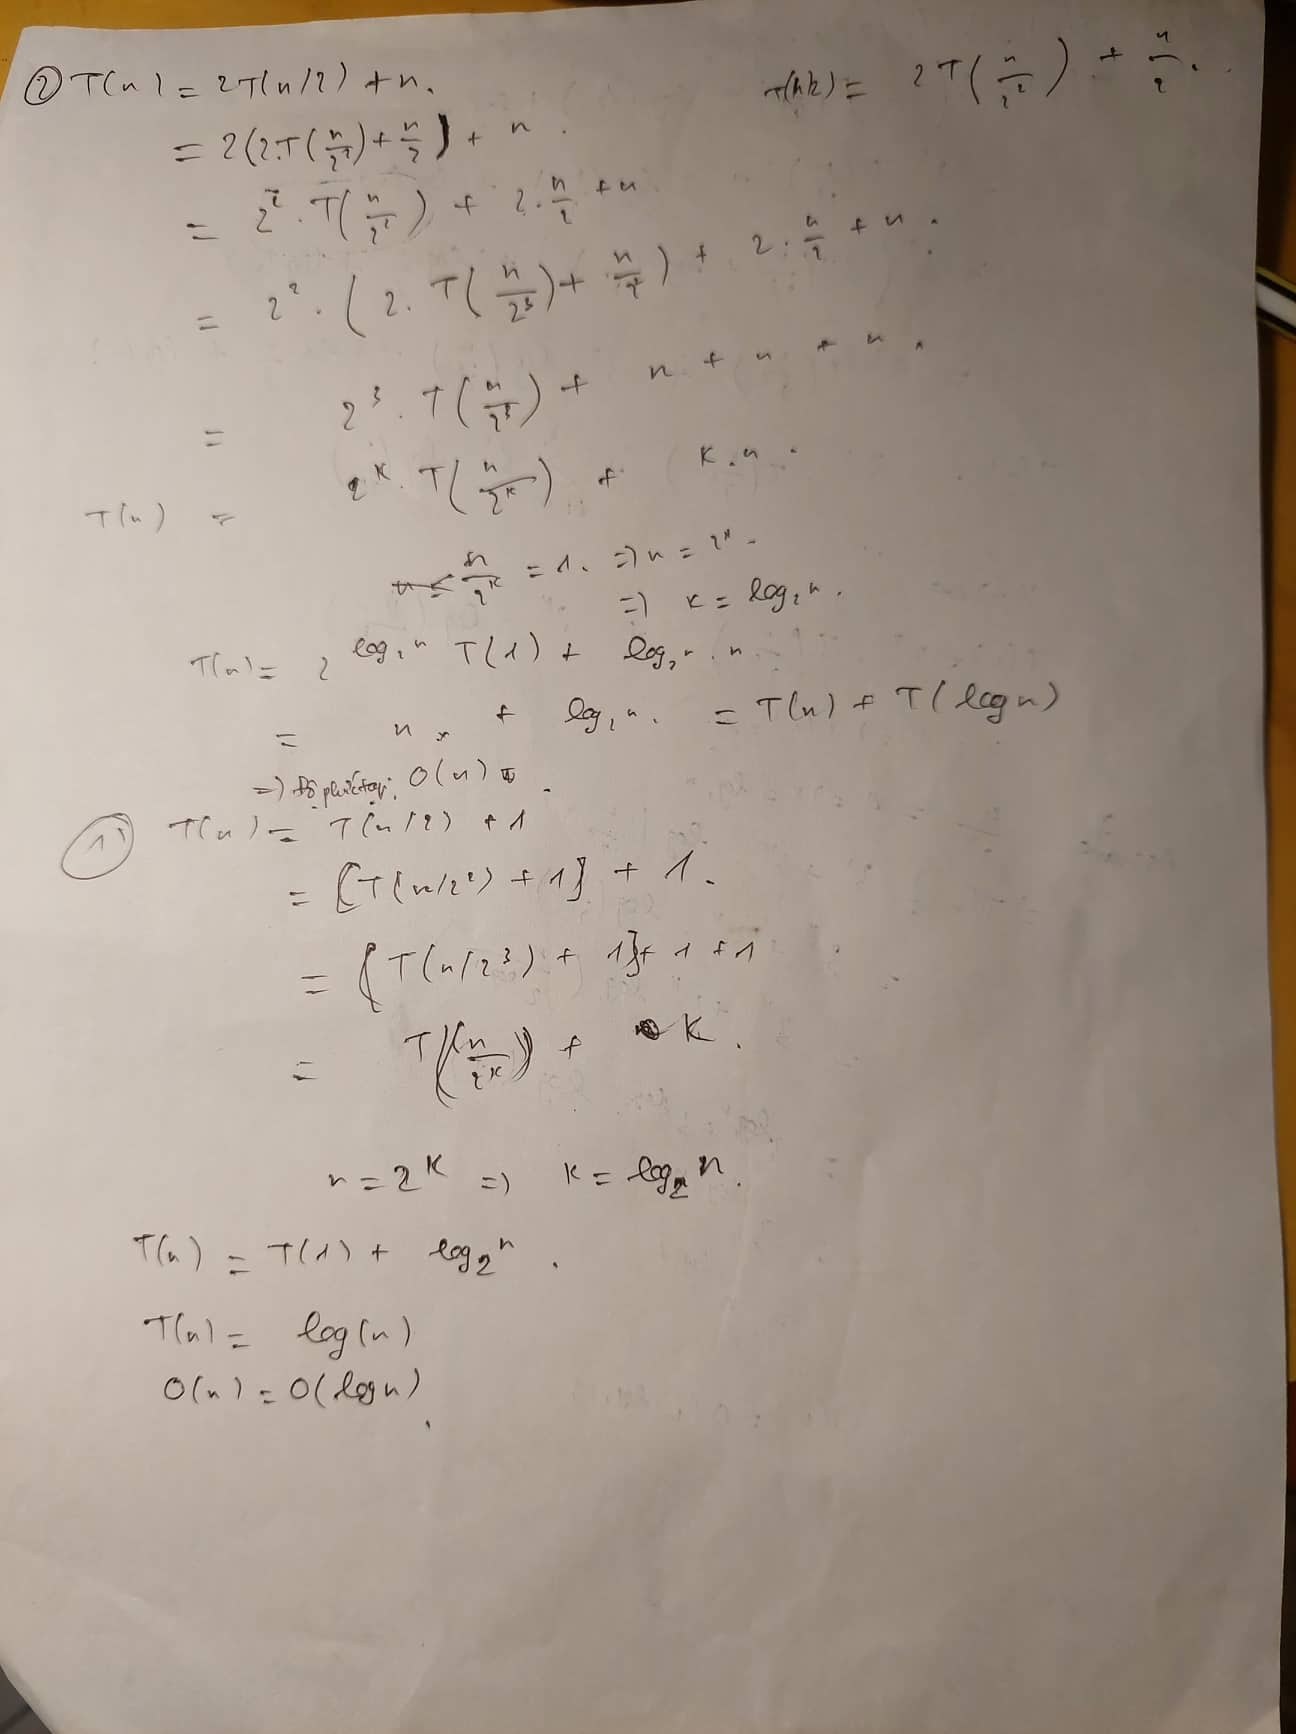 ② T(n) = 2T(n/2) + n. T(n/2) = 2T(n/2²) + n/2.
= 2(2.T(n/2²) + n/2) + n.
= 2². T(n/2²) + 2.n/2 + n
= 2². (2. T(n/2³) + n/2²) + 2.n/2 + n.
= 2³. T(n/2³) + n + n + n.
T(n) = 2^K. T(n/2^K) + K.n.
n/2^K = 1. => n = 2^K.
=> K = log₂n.
T(n) = 2^log₂n T(1) + log₂n . n
= n + log₂n. = T(n) + T(logn)
=> Độ phức tạp: O(n)
① T(n) = T(n/2) + 1
= [T(n/2²) + 1] + 1.
= [T(n/2³) + 1] + 1 + 1
= T(n/2^K) + K.
n = 2^K => K = log₂n.
T(n) = T(1) + log₂n.
T(n) = log(n)
O(n) = O(logn).